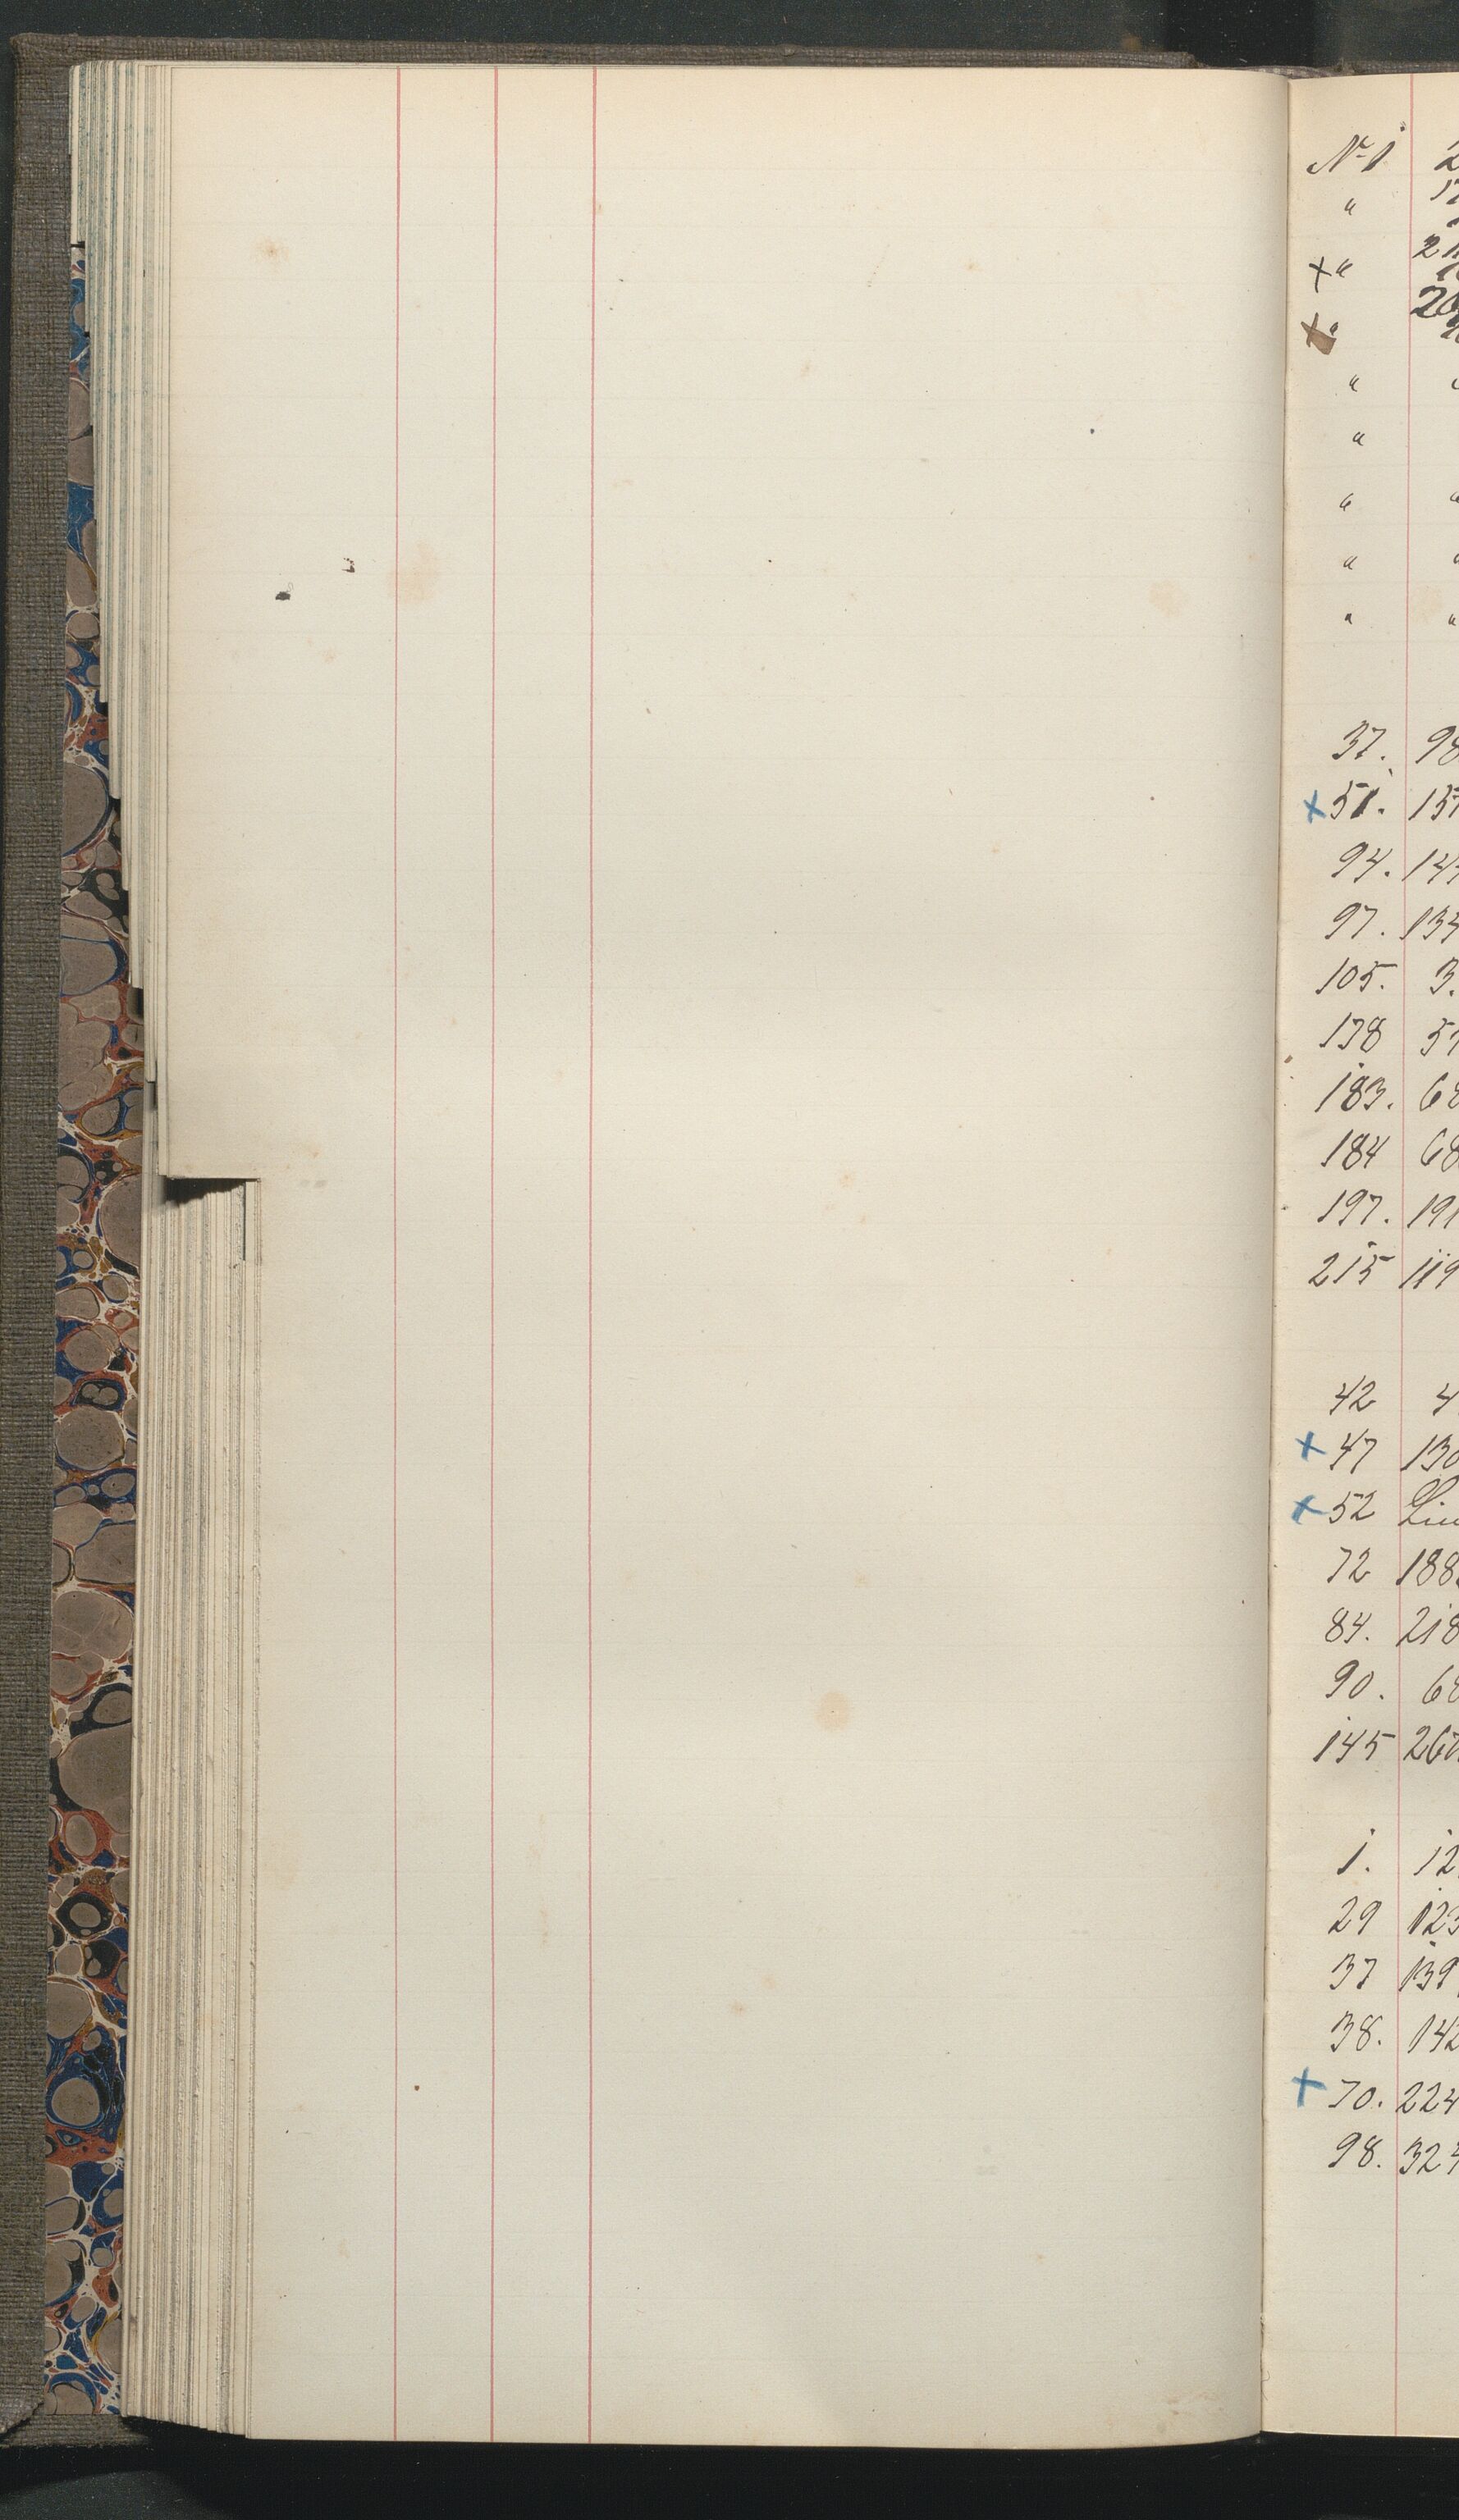 No 1 2
"
× "
× "
" "
"
" "
" "
" "
37. 98
× 51. 137
94. 144
97. 134
105. 3.
138 57
183. 68
184 68
197. 191
215 119
42 4
× 47 130
× 52
72 188
84. 218
90. 68
145 267
1. 12
29 123
37 139
38. 142
× 70. 224
98. 324